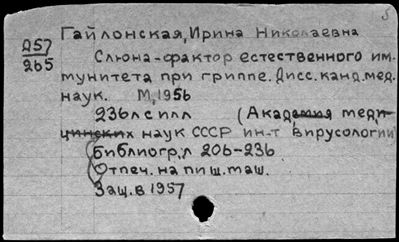 5
Гайлонская, Ирина Николаевна
Д57
265
Слюна-фактор естественного им-
мунитета при гриппе. Дисс. канд. мед.
наук. М, 1956
236 л с илл (Академия меди-
цинских наук СССР ин-т вирусологии
Библиогр, л 206-236
Отпеч. на пиш. маш.
Защ. в 1957